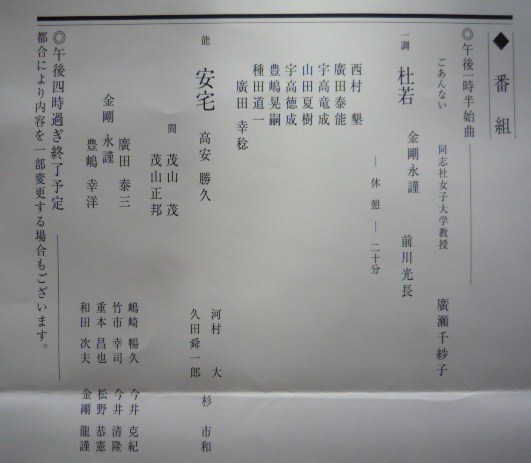 ◆ 番組
◎午後一時半始曲
ごあんない 同志社女子大学教授 廣瀬千紗子
一調 杜若 金剛永謹 前川光長
― 休憩 ― 二十分
西村 墾
廣田泰能
宇高竜成
山田夏樹
宇高徳成
豊嶋晃嗣
種田道一
廣田幸稔
能 安宅 高安勝久 河村 大 杉 市和
久田舜一郎
間 茂山 茂
茂山正邦
廣田 泰三 嶋崎 暢久 今井 克紀
金剛 永謹 竹市 幸司 今井 清隆
豊嶋 幸洋 重本 昌也 松野 恭憲
和田 次夫 金剛 龍謹
◎午後四時過ぎ終了予定
都合により内容を一部変更する場合もございます。